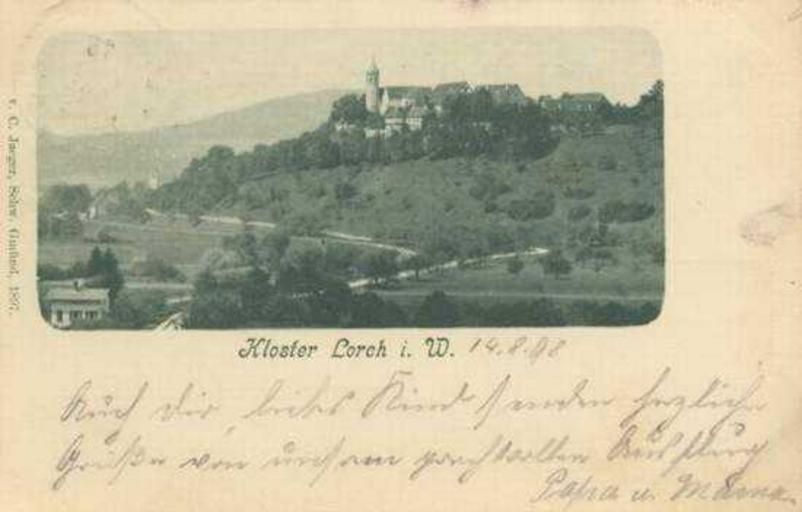 Kloster Lorch i. W. 14.8.98
Auch dir, liebes Kind senden herzliche
Grüße von unserm prachtvollen Ausflug
Papa u. Mama.
v. C. Jaeger, Schw. Gmünd, 1897.